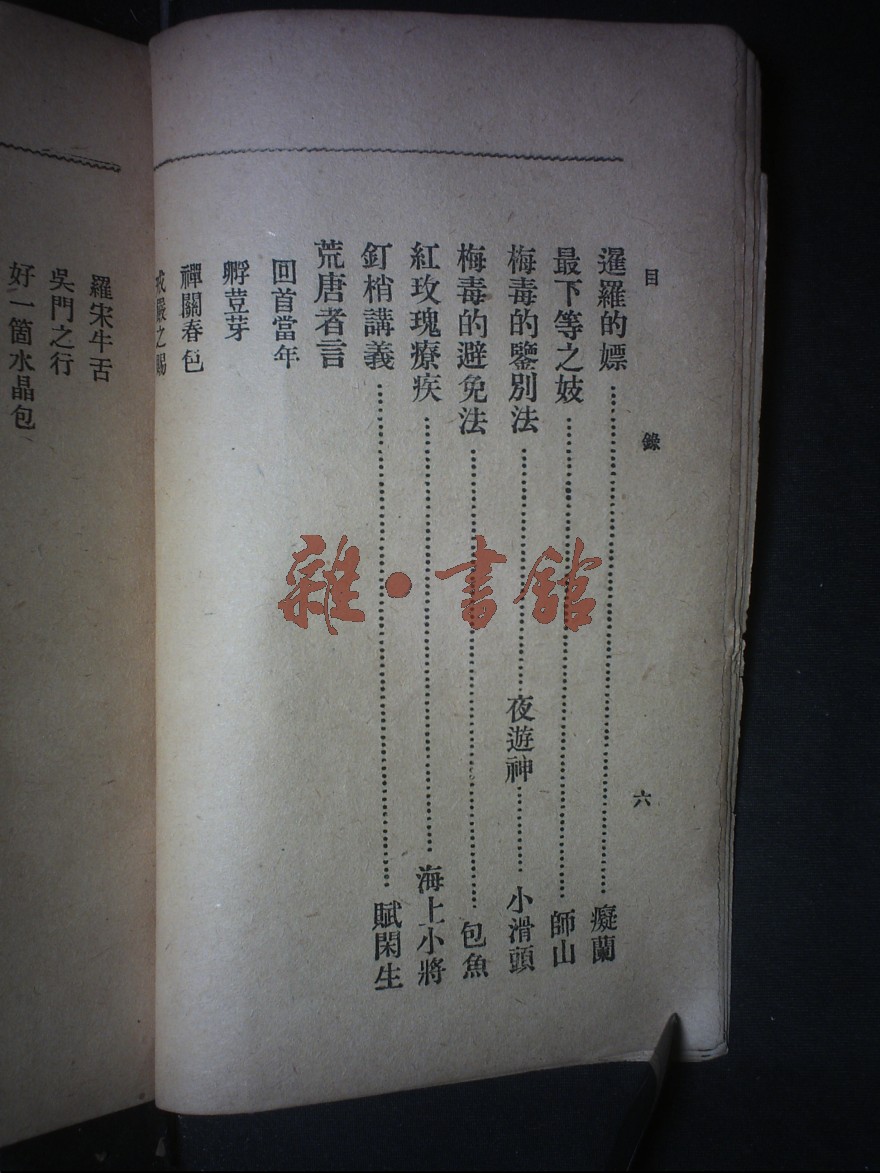 目錄 六
暹羅的嫖……癡蘭
最下等之妓……師山
梅毒的鑒別法……夜遊神……小滑頭
梅毒的避免法……包魚
紅玫瑰療疾……海上小將
釘梢講義……賦閑生
荒唐者言
回首當年
孵荳芽
禪關春色
戒嚴之賜
羅宋牛舌
吳門之行
好一箇水晶包
雜·書館